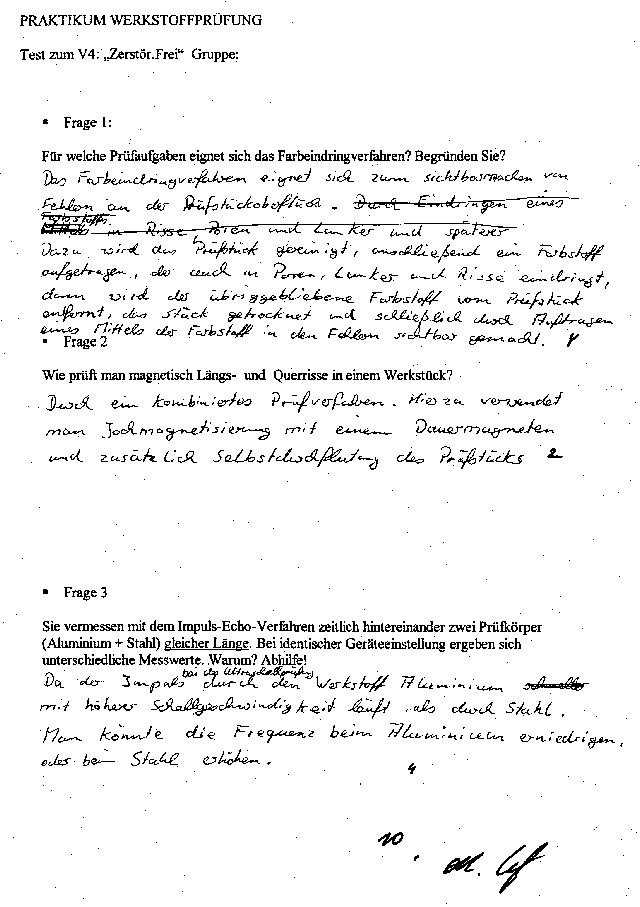 PRAKTIKUM WERKSTOFFPRÜFUNG
Test zum V4: „Zerstör.Frei“ Gruppe:
▪ Frage 1:
Für welche Prüfaufgaben eignet sich das Farbeindringverfahren? Begründen Sie?
Das Farbeindringverfahren eignet sich zum sichtbarmachen von
Fehlern an der Prüfstückoberfläch. Durch Eindringen eines
Farbstoffs
Mittels in Risse Poren und Lunker und späterer
Dazu wird das Prüfstück gereinigt, anschließend ein Farbstoff
aufgetragen, der auch in Poren, Lunker und Risse eindringt,
dann wird der übriggebliebene Farbstoff vom Prüfstück
entfernt, das Stück getrocknet und schließlich durch Auftragen
eines Mittels der Farbstoff in den Fehlern sichtbar gemacht. 4
▪ Frage 2
Wie prüft man magnetisch Längs- und Querrisse in einem Werkstück?
Durch ein kombiniertes Prüfverfahren. Hierzu verwendet
man Jochmagnetisierung mit einem Dauermagneten
und zusätzlich Selbstdurchflutung des Prüfstücks 2
▪ Frage 3
Sie vermessen mit dem Impuls-Echo-Verfahren zeitlich hintereinander zwei Prüfkörper
(Aluminium + Stahl) gleicher Länge. Bei identischer Geräteeinstellung ergeben sich
unterschiedliche Messwerte. Warum? Abhilfe!
bei der Ultraschallprüfung
Da der Impuls durch den Werkstoff Aluminium schneller
mit höherer Schallgeschwindigkeit läuft als durch Stahl.
Man könnte die Frequenz beim Aluminium erniedrigen,
oder beim Stahl erhöhen.
4
10